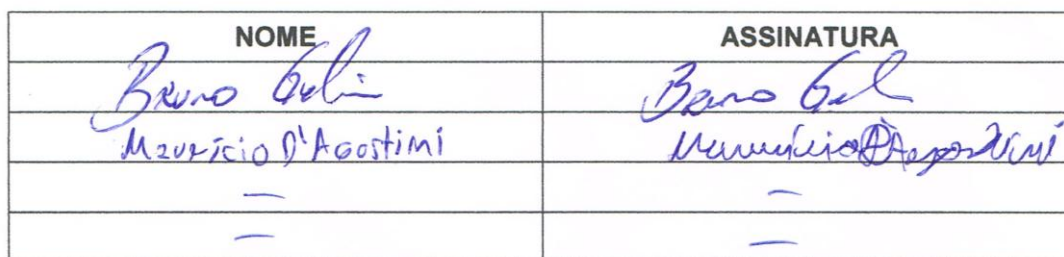 NOME ASSINATURA
Bruno Bruno
Maurício D'Agostini Maurício D'Agostini
— —
— —